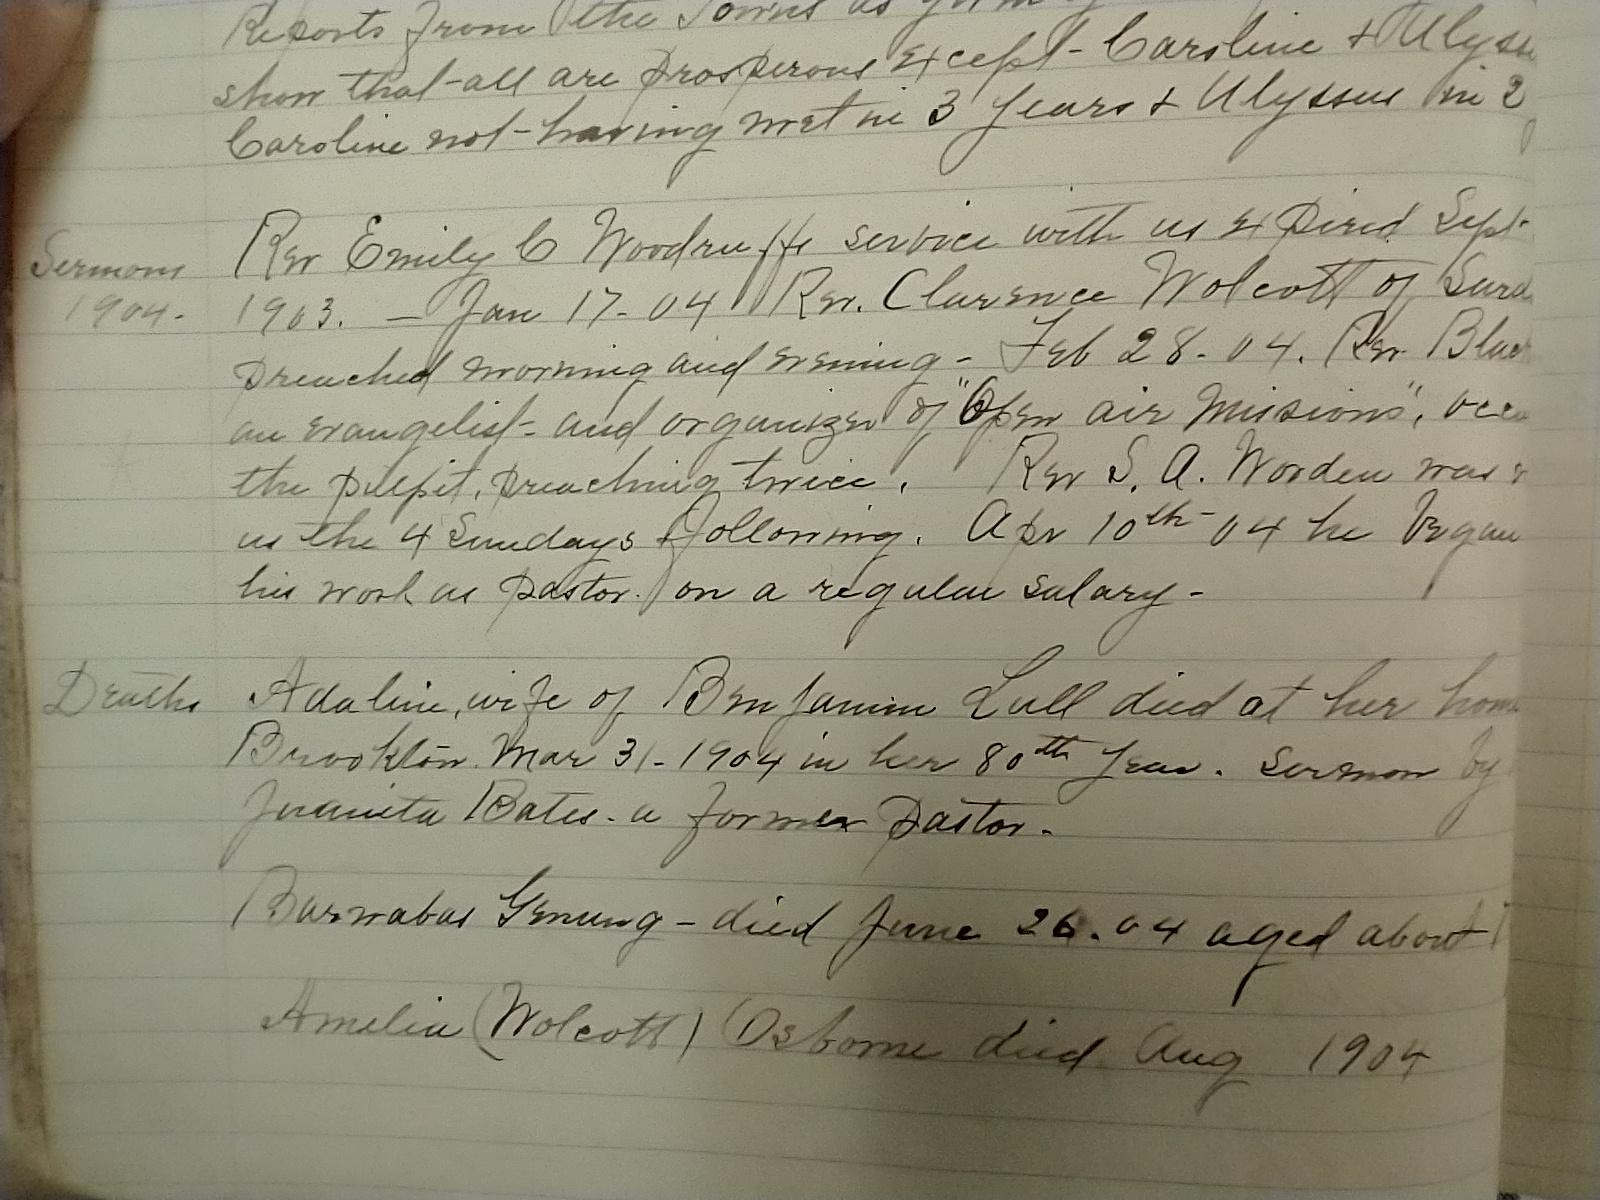 Reports from the Towns as
show that all are prosperous except Caroline & Ulyss
Caroline not having met in 3 years & Ulyssus in 2
Sermons Rev Emily C Woodruffs service with us expired Sept
1904. 1903. — Jan 17-04 Rev. Clarence Wolcott of
preached morning and evening - Feb 28-04. Rev Blac
an evangelist and organizer of "Open air Missions", occu
the pulpit, preaching twice. Rev S. A. Worden was
us the 4 Sundays following. Apr 10th 04 he began
his work as pastor on a regular salary -
Deaths Adaline, wife of Benjamin Lull died at her home
Brookton Mar 31-1904 in her 80th year. Sermon by
Juanita Bates - a former pastor.
Barnabas Genung - died June 26.04 aged about
Amelia (Wolcott) Osborne died Aug 1904